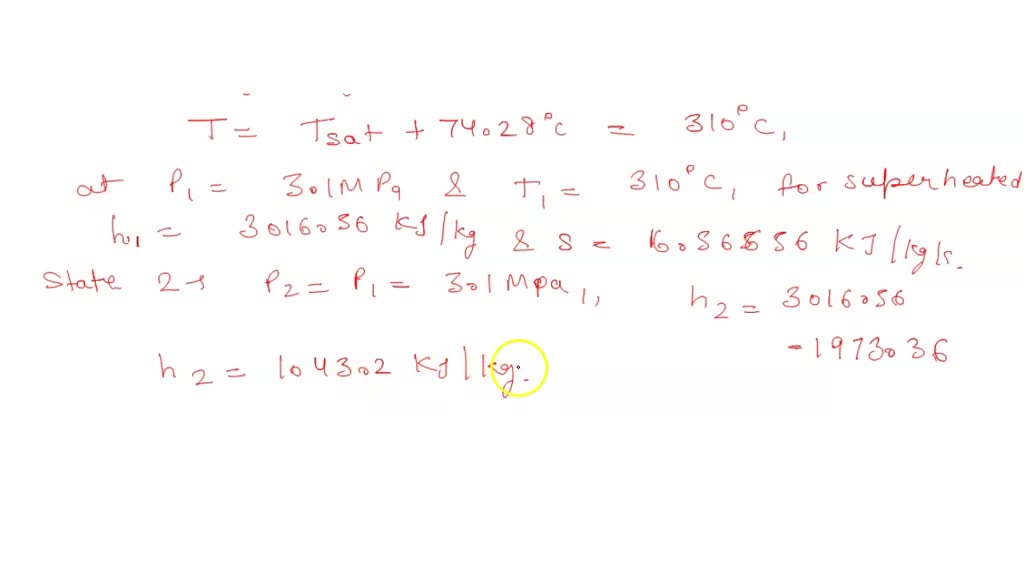 T = Tsat + 74.28°C = 310°C,
at P1 = 3.1MPa & T1 = 310°C, for superheated
h1 = 3016.56 KJ/kg & S = 6.56556 KJ/kgk.
State 2→ P2 = P1 = 3.1Mpa,, h2 = 3016.56
-1973.36
h2 = 1043.2 KJ/kg.